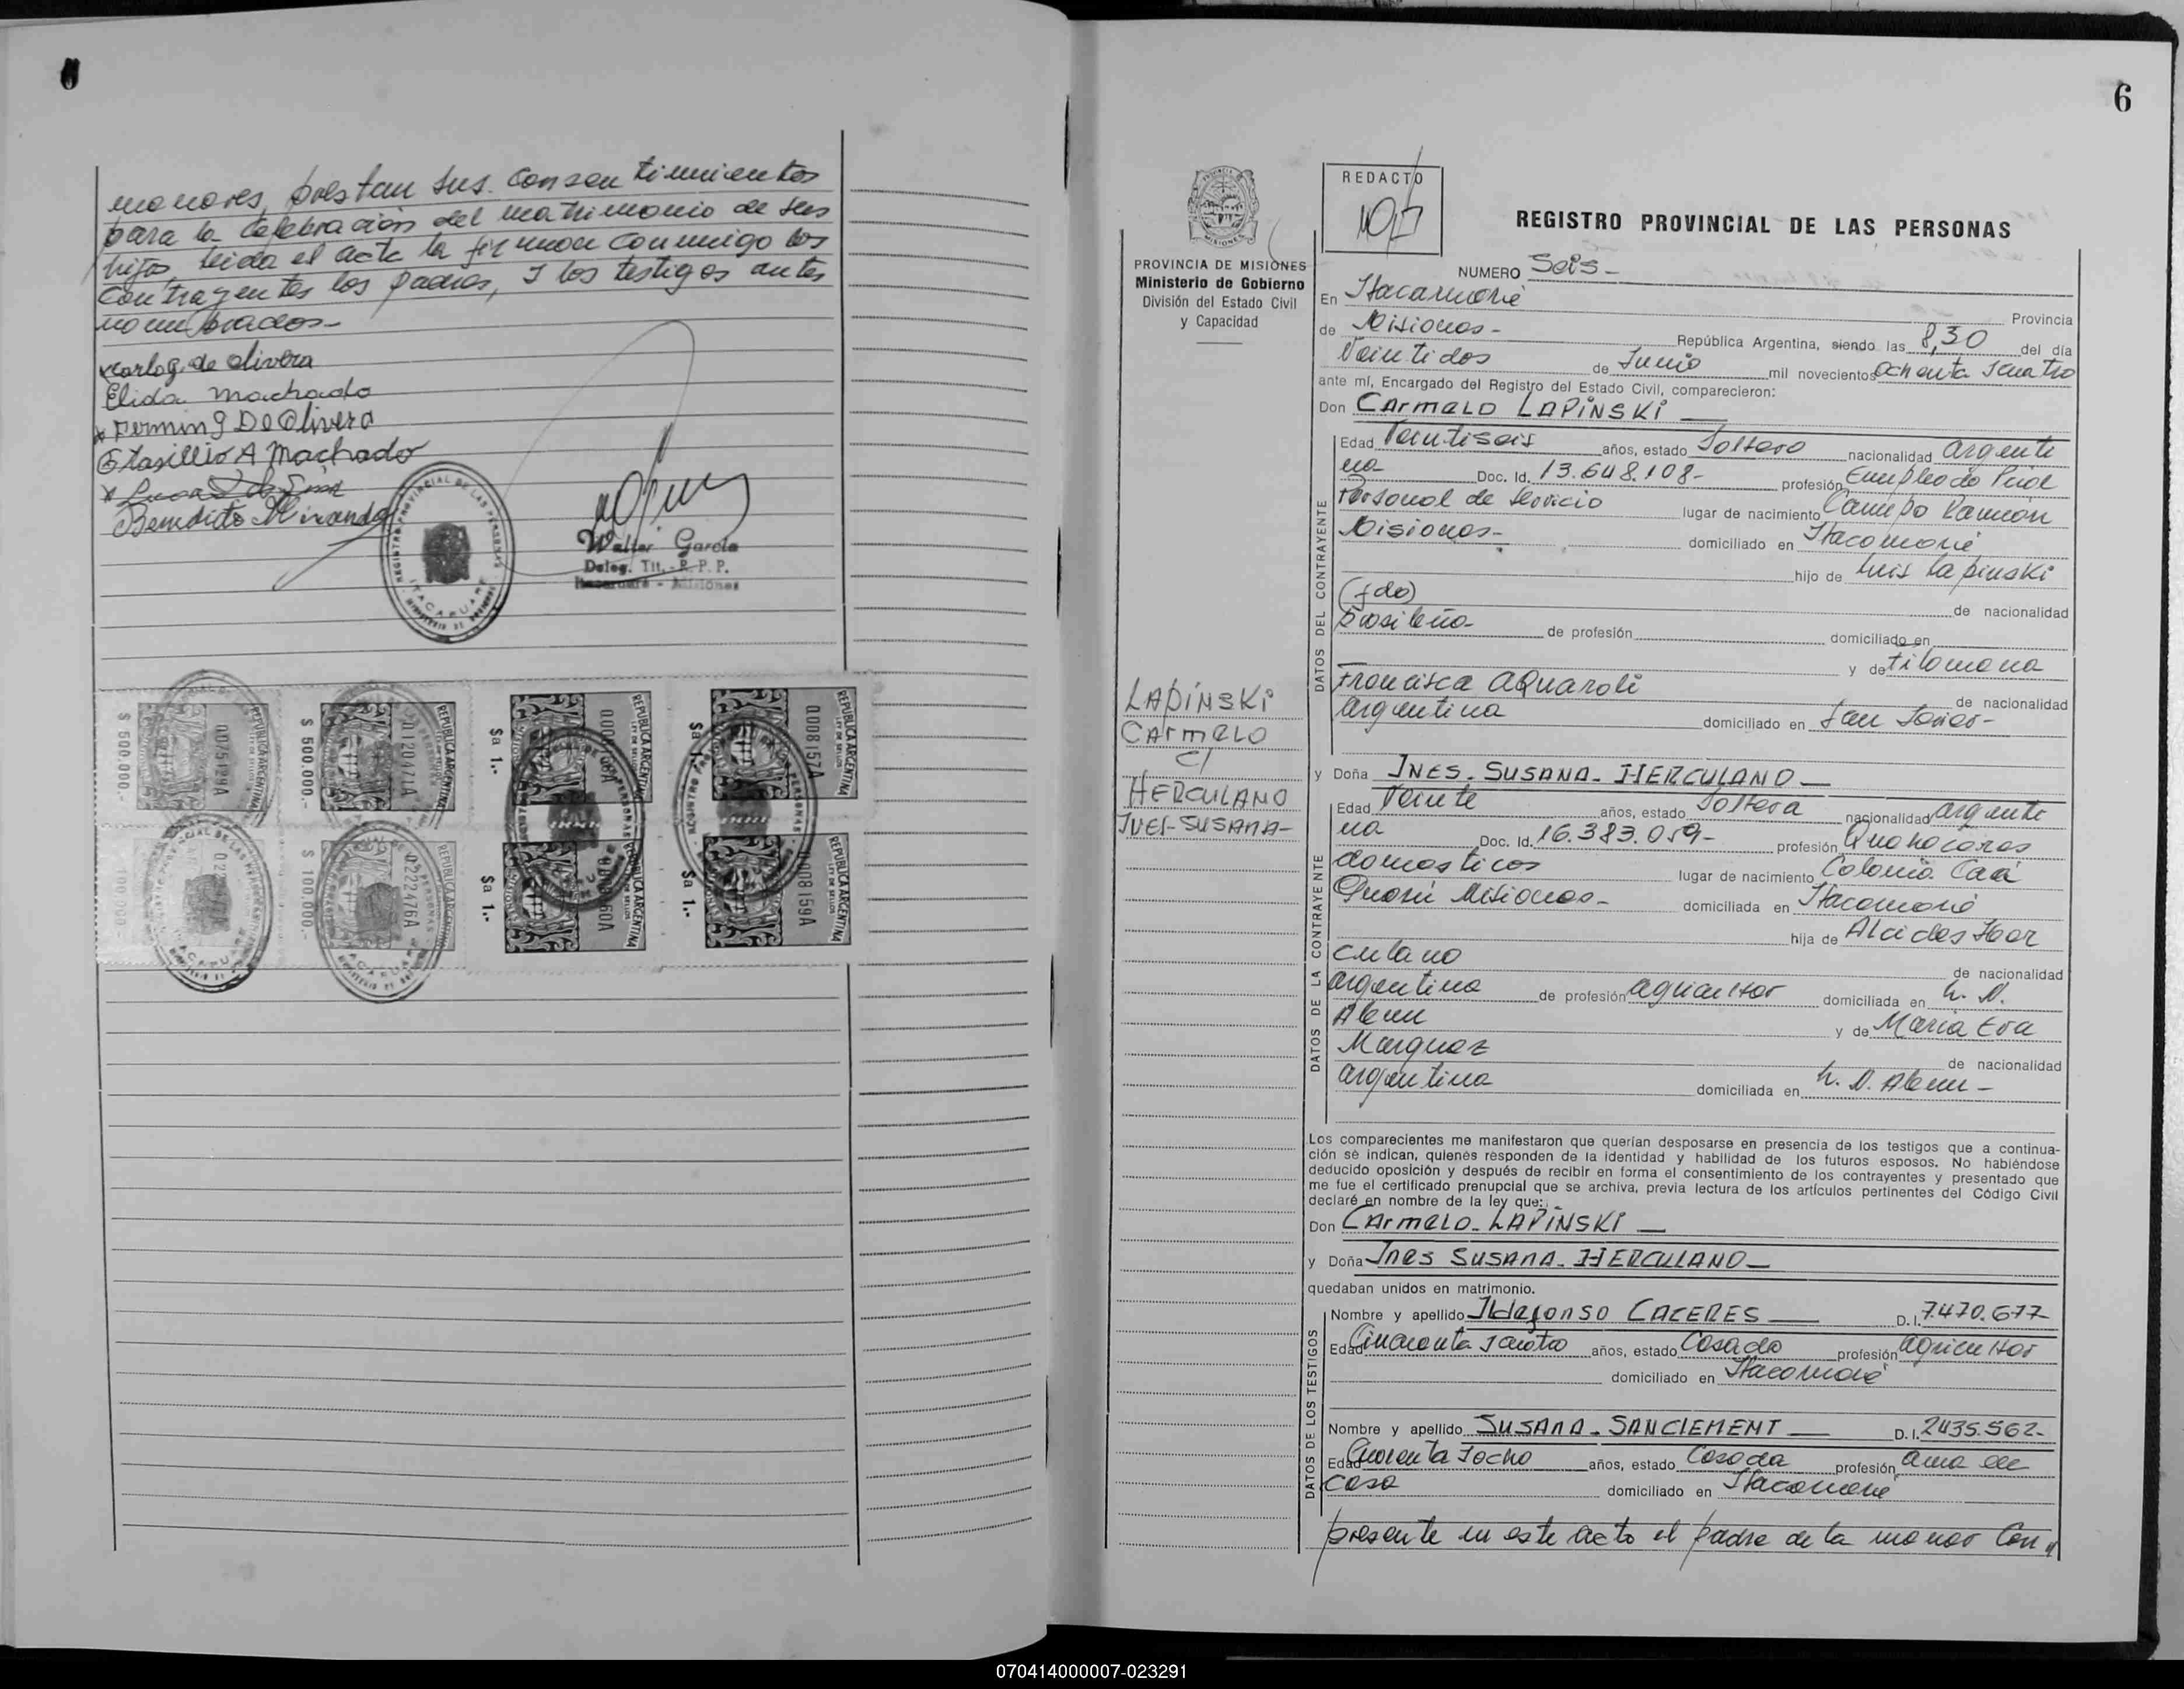 menores, prestan sus consentimientos
para la celebración del matrimonio de sus
hijos, leida el acta la firman conmigo los
contrayentes los padres, y los testigos antes
nombrados-
Carlos de olivera
Elida Machado
Fermin g De Olivera
A Machado
Benedito Miranda
Walter García
Deleg. Tit. - R. P. P.
Itacaruaré - Misiones
$ 500.000.-
0075129A
$ 500.000.-
REPUBLICA ARGENTINA
$a 1.-
REPUBLICA ARGENTINA
LEY DE SELLOS
$a 1.-
0008157A
REPUBLICA ARGENTINA
LEY DE SELLOS
100.000.-
$ 100.000.-
0222476A
REPUBLICA ARGENTINA
$a 1.-
REPUBLICA ARGENTINA
LEY DE SELLOS
$a 1.-
0008159A
REPUBLICA ARGENTINA
LEY DE SELLOS
6
PROVINCIA DE MISIONES
Ministerio de Gobierno
División del Estado Civil
y Capacidad
REDACTO
REGISTRO PROVINCIAL DE LAS PERSONAS
NUMERO Seis-
En Itacaruaré Provincia
de Misiones- República Argentina, siendo las 8,30 del día
Veintidos de Junio mil novecientos Ochenta y cuatro
ante mí, Encargado del Registro del Estado Civil, comparecieron:
Don CArmeLO LAPiNSKi
DATOS DEL CONTRAYENTE
Edad Veintiseis años, estado Soltero nacionalidad argenti
na Doc. Id. 13.648.108- profesión Empleado Ppal
Personal de Servicio lugar de nacimiento Campo Ramón
Misiones- domiciliado en Itacaruaré
hijo de Luis Lapinski
(fdo) de nacionalidad
brasileña- de profesión domiciliado en
y de Filomena
Francisca AQuaroli de nacionalidad
argentina domiciliado en San Javier-
LAPiNSKi
CArmeLO
C/
HERCULANO
INES-SUSANA-
y Doña INES. SUSANA- HERCULANO
DATOS DE LA CONTRAYENTE
Edad Veinte años, estado Soltera nacionalidad argenti
na Doc. Id. 16.383.059- profesión Quehaceres
domesticos lugar de nacimiento Colonia Caá
Guarú Misiones- domiciliada en Itacaruaré
hija de Alcides Her
culano de nacionalidad
argentina de profesión agricultor domiciliada en L. N.
Alem y de Maria Eva
Marquez de nacionalidad
argentina domiciliada en L. N. Alem-
Los comparecientes me manifestaron que querían desposarse en presencia de los testigos que a continua-
ción se indican, quienes responden de la identidad y habilidad de los futuros esposos. No habiéndose
deducido oposición y después de recibir en forma el consentimiento de los contrayentes y presentado que
me fue el certificado prenupcial que se archiva, previa lectura de los artículos pertinentes del Código Civil
declaré en nombre de la ley que:
Don CArmeLO- LAPiNSKi
y Doña INeS SUSANA- HERCULANO
quedaban unidos en matrimonio.
DATOS DE LOS TESTIGOS
Nombre y apellido ILdefonSO CACERES D. I. 7.470.677-
Edad Cincuenta y cuatro años, estado Casado profesión agricultor
domiciliado en Itacaruaré
Nombre y apellido SUSANA- SANCLEMENT D. I. 2435.562-
Edad Cuarenta y ocho años, estado Casada profesión ama de
casa domiciliado en Itacaruaré
presente en este acto el padre de la menor Con
070414000007-023291